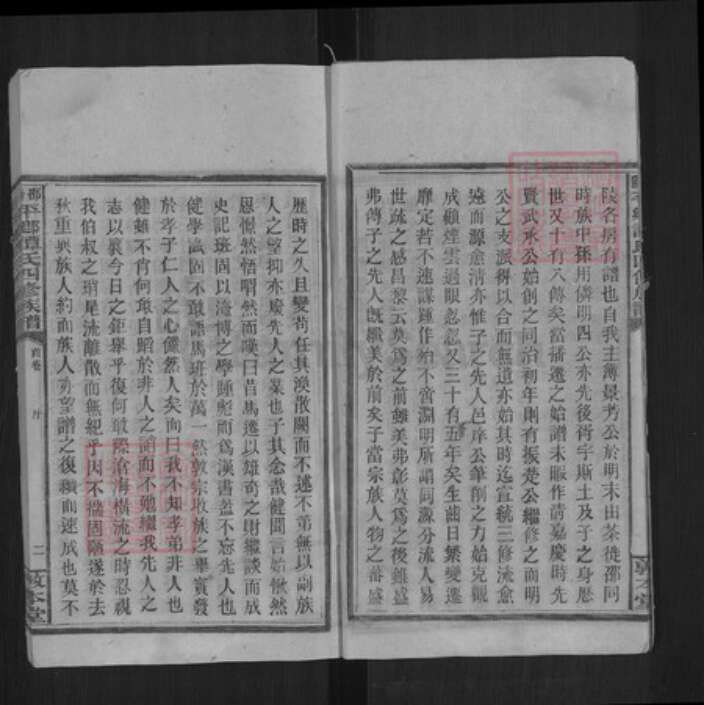 陵各房有譜也自我主簿景考公於明末由茶徙邵同
時族中孫用憐明四公亦先後衖宇斯土及子之身歷
世又十有八傳矣當播遷之始譜未暇作清嘉慶時先
賢武承公始創之同治初年則有振楚公繼修之而明
公之支派得以合而無遺亦始其時迄宣統三修流愈
遠而源愈清亦惟子之先人邑庠公筆削之力始克觀
成顧煙雲過眼忽忽又三十有五年矣生齒日繁變遷
靡定若不速謀踵作殆不啻淵明所謂同源分流人易
世疎之感昌黎云莫為之前雖美弗彰莫為之後雖盛
弗傳子之先人既繼美於前矣子當宗族人物之蕃盛
歷時之久且變苟任其渙散闕而不述不第無以副族
人之望抑亦慶先人之業也子其念哉健聞言始愀然
恩慨然悟喟然而嘆曰昔馬遷以雄奇之財繼談而成
史記班固以淹博之學踵彪而為漢書蓋不忘先人也
健學識固不敢語馬班於萬一然敦宗收族之舉實發
於孝子仁人之心儼然人矣而曰我不知孝弟非人也
健雖不肖何敢自蹈於非人之誚而不勉繼我先人之
志以襄今日之鉅舉乎復何敢際滄海橫流之時忍視
我伯叔之琑尾流離散而無紀乎因不揣固陋遂於去
秋重與族人約而族人亦望譜之復續而速成也莫不
邵平鄉譚氏四修族譜
首卷
序
二
敦本堂
敦本堂